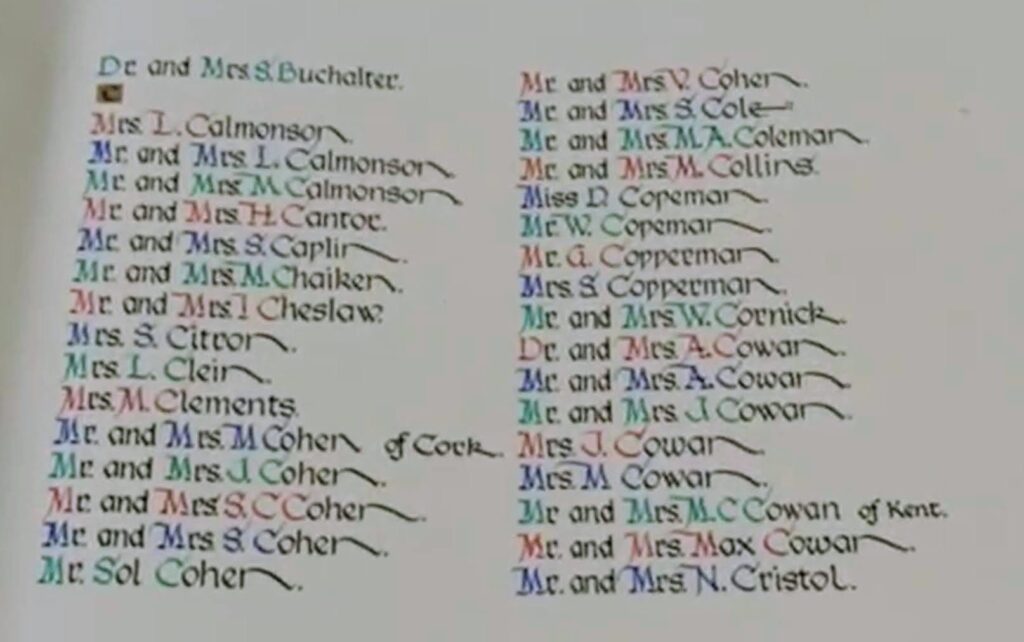 Dr. and Mrs. S. Buchalter.
C
Mrs. L. Calmonson.
Mr. and Mrs. L. Calmonson.
Mr. and Mrs. M. Calmonson.
Mr. and Mrs. H. Cantor.
Mr. and Mrs. S. Caplin.
Mr. and Mrs. M. Chaiken.
Mr. and Mrs. I Cheslaw.
Mrs. S. Citron.
Mrs. L. Clein.
Mrs. M. Clements.
Mr. and Mrs. M Cohen of Cork.
Mr. and Mrs. J. Cohen.
Mr. and Mrs. S. C Cohen.
Mr. and Mrs. S. Cohen.
Mr. Sol Cohen.
Mr. and Mrs V. Cohen.
Mr. and Mrs. S. Cole
Mr. and Mrs. M. A. Coleman.
Mr. and Mrs. M. Collins.
Miss D. Copeman.
Mr. W. Copeman.
Mr. G. Copperman.
Mrs. S. Copperman.
Mr. and Mrs. W. Cornick.
Dr. and Mrs. A. Cowan.
Mr. and Mrs. A. Cowan.
Mr. and Mrs. J. Cowan.
Mrs. J. Cowan.
Mrs. M Cowan.
Mr and Mrs. M. C Cowan of Kent.
Mr. and Mrs. Max Cowan.
Mr. and Mrs. N. Cristol.